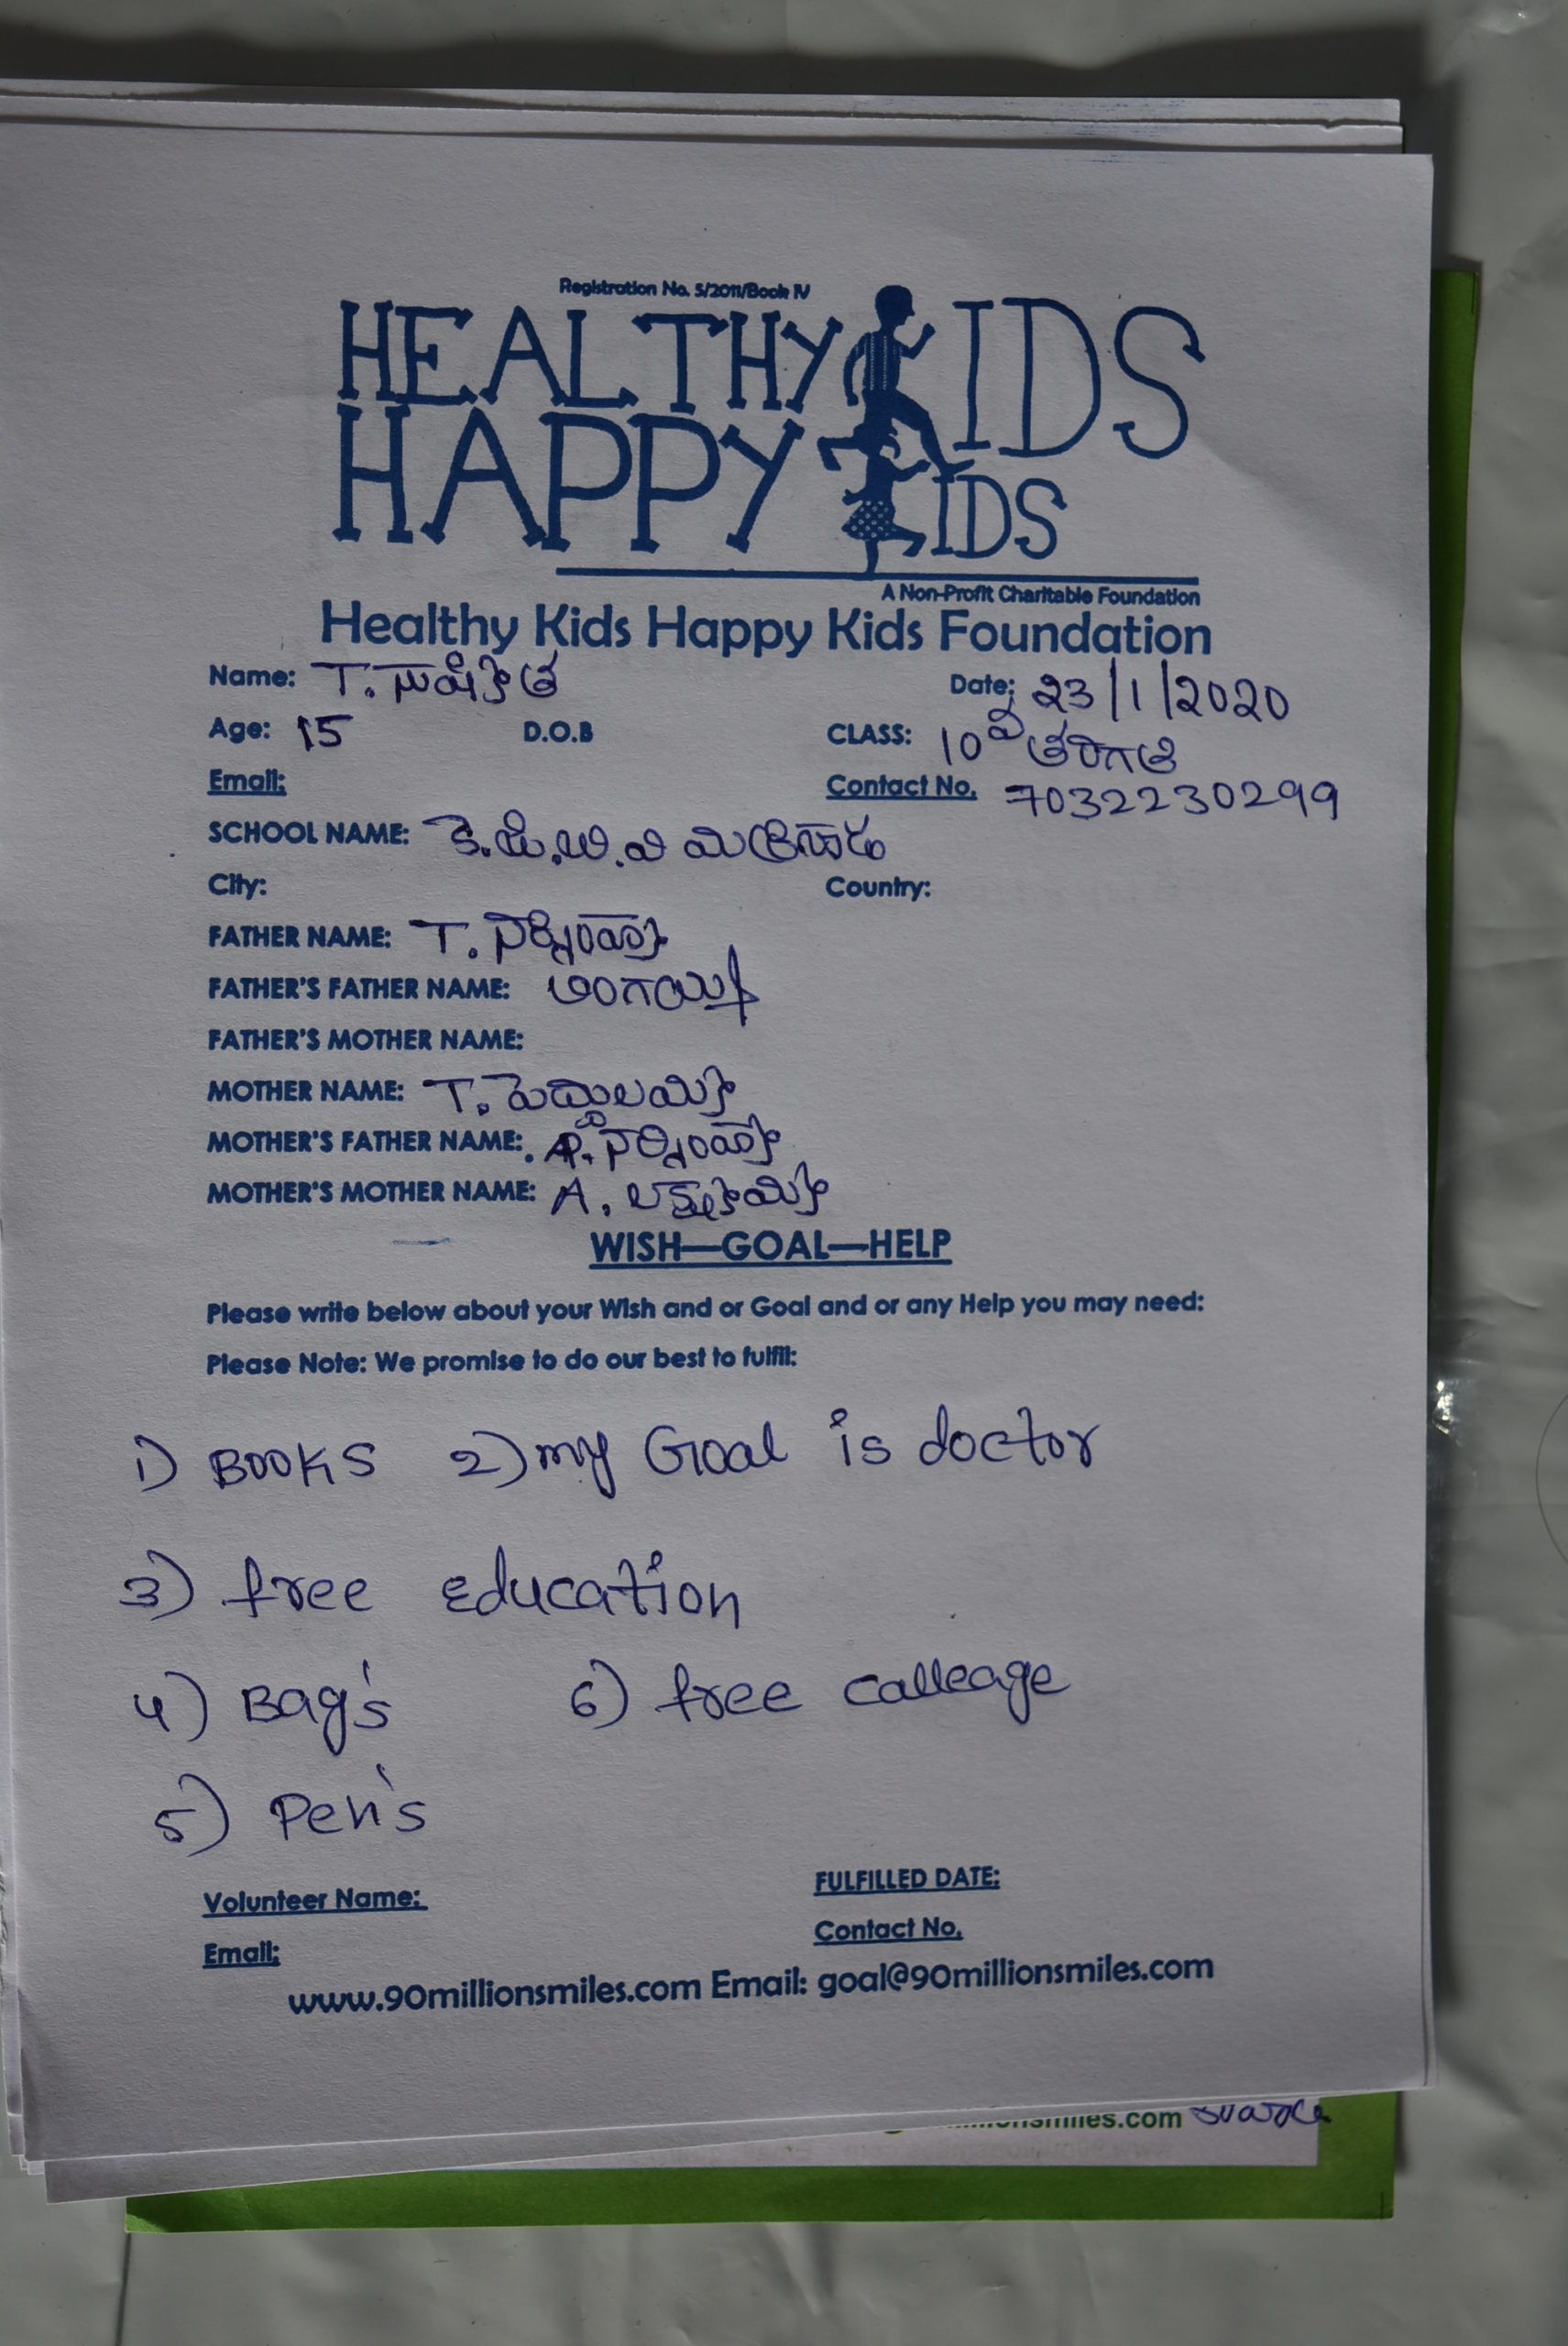 Registration No. 5/2011/Book IV
HEALTHY KIDS
HAPPY KIDS
A Non-Profit Charitable Foundation
Healthy Kids Happy Kids Foundation
Name: T. Date: 23/1/2020
Age: 15 D.O.B CLASS: 10వ తరగతి
Email: Contact No. 7032230299
SCHOOL NAME: కె.జి.బి.వి
City: Country:
FATHER NAME: T. నర్సింహ్మా
FATHER'S FATHER NAME:
FATHER'S MOTHER NAME:
MOTHER NAME: T. పెద్దులమ్మ
MOTHER'S FATHER NAME: నర్సింహ్మా
MOTHER'S MOTHER NAME: A. లక్ష్మమ్మ
WISH—GOAL—HELP
Please write below about your Wish and or Goal and or any Help you may need:
Please Note: We promise to do our best to fulfil:
1) BOOKS 2) my Goal is doctor
3) free education
4) Bag's 6) free calleage
5) Pen's
Volunteer Name: FULFILLED DATE:
Email: Contact No.
www.90millionsmiles.com Email: goal@90millionsmiles.com